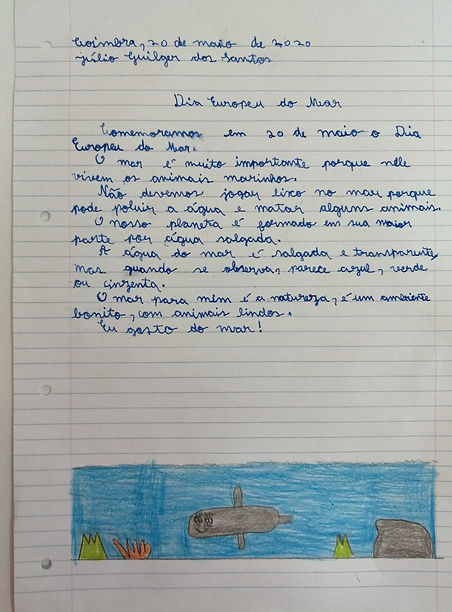 Coimbra, 20 de maio de 2020
Júlio Guilger dos Santos
Dia Europeu do Mar
Comemoramos em 20 de maio o Dia
Europeu do Mar.
O mar é muito importante porque nele
vivem os animais marinhos.
Não devemos jogar lixo no mar porque
pode poluir a água e matar alguns animais.
O nosso planeta é formado em sua maior
parte por água salgada.
A água do mar é salgada e transparente,
mas quando se observa, parece azul, verde
ou cinzenta.
O mar para mim é a natureza, é um ambiente
bonito, com animais lindos.
Eu gosto do mar!